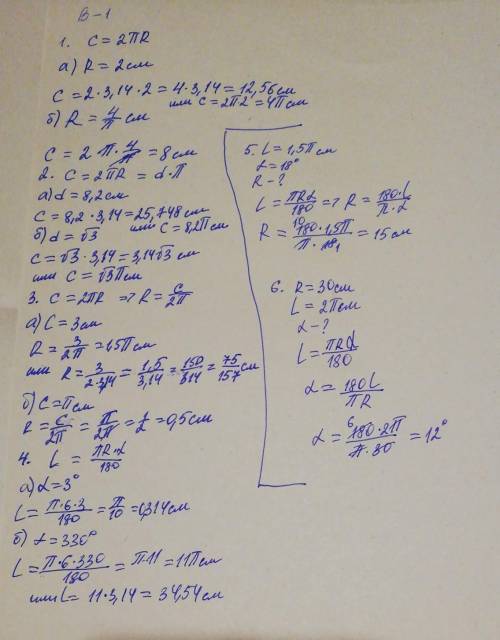 В-1
1. C = 2πR
а) R = 2см
C = 2·3,14·2 = 4·3,14 = 12,56см
или C = 2π2 = 4πсм
б) R = 4/π см
C = 2·π·4/π = 8см
2. C = 2πR = d·π
а) d = 8,2см
C = 8,2·3,14 = 25,748см
или C = 8,2π см
б) d = √3
C = √3·3,14 = 3,14√3 см
или C = √3π см
3. C = 2πR => R = C/2π
а) C = 3см
R = 3/2π = 1,5π см
или R = 3/2·3,14 = 1,5/3,14 = 150/314 = 75/157 см
б) C = π см
R = C/2π = π/2π = 1/2 = 0,5см
4. L = πR·α/180
а) α = 3°
L = π·6·3/180 = π/10 = 0,314см
б) α = 330°
L = π·6·330/180 = π·11 = 11π см
или L = 11·3,14 = 34,54см
5. L = 1,5π см
α = 18°
R - ?
L = πRα/180 => R = 180·L/π·α
R = 10 180·1,5π/π·18 1 = 15см
6. R = 30см
L = 2π см
α - ?
L = πRα/180
α = 180L/πR
α = 6 180·2π/π·30 = 12°